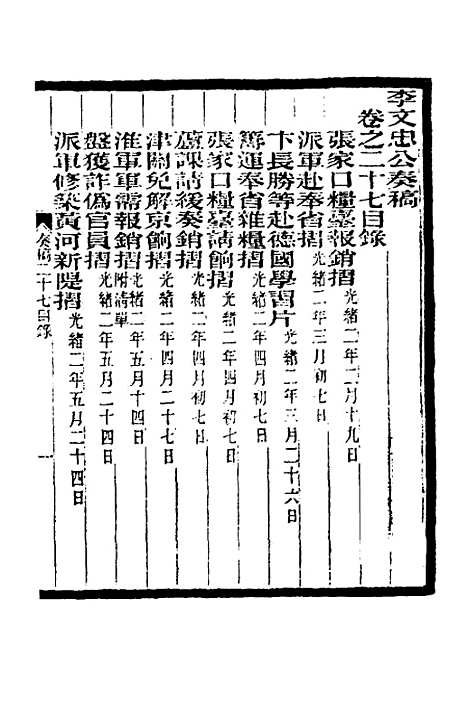 李文忠公奏稿
卷之二十七目錄
張家口糧臺報銷摺光緒二年二月十九日
派軍赴奉省摺光緒二年三月初七日
卞長勝等赴德國學習片光緒二年三月二十六日
籌運奉省雜糧摺光緒二年四月初七日
張家口糧臺請餉摺光緒二年四月初七日
蘆課請後奏銷摺光緒二年四月初七日
津關免解京餉摺光緒二年四月二十七日
淮軍軍需報銷摺附清單光緒二年五月十四日
盤獲詐偽官員摺光緒二年五月二十四日
派軍修築黃河新隄摺光緒二年五月二十四日
奏稿二十七目錄 一